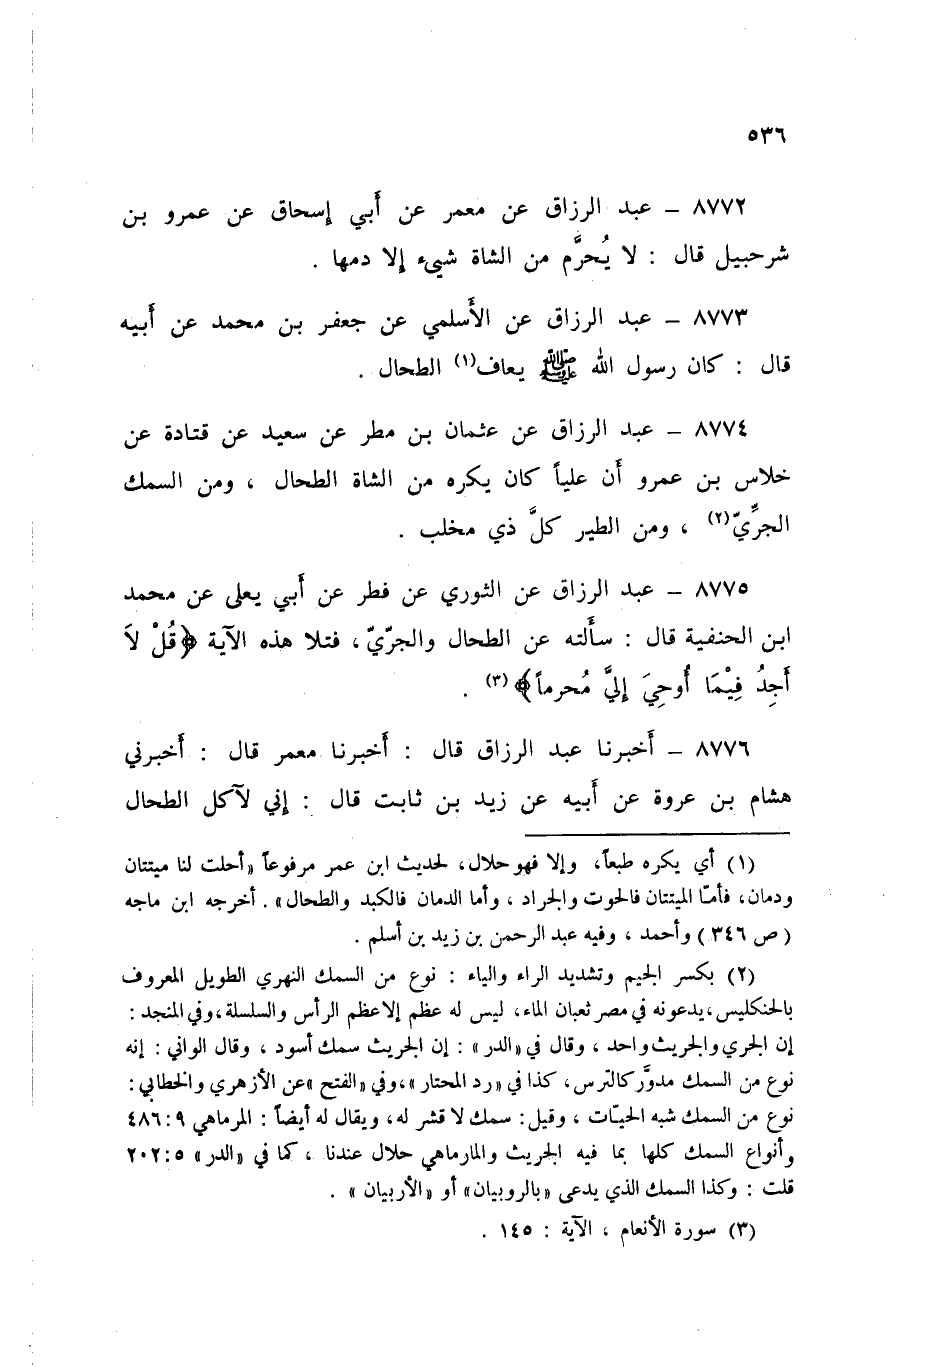 ٥٣٦
٨٧٧٢ – عبد الرزاق عن معمر عن أَبي إسحاق عن عمرو بن
شرحبيل قال : لا يُحرَّم من الشاة شيء إلا دمها .
٨٧٧٣ – عبد الرزاق عن الأَسلمي عن جعفر بن محمد عن أَبيه
قال : كان رسول الله ﷺ يعاف(١) الطحال .
٨٧٧٤ – عبد الرزاق عن عثمان بن مطر عن سعيد عن قتادة عن
خلاس بن عمرو أَن علياً كان يكره من الشاة الطحال ، ومن السمك
الجرِّيّ(٢) ، ومن الطير كلَّ ذي مخلب .
٨٧٧٥ – عبد الرزاق عن الثوري عن فطر عن أَبي يعلى عن محمد
ابن الحنفية قال : سأَلته عن الطحال والجرّيّ، فتلا هذه الآية ﴿قُلْ لاَ
أَجِدُ فِيْمَا أُوحِيَ إِلَيَّ مُحرماً﴾(٣) .
٨٧٧٦ – أَخبرنا عبد الرزاق قال : أَخبرنا معمر قال : أَخبرني
هشام بن عروة عن أَبيه عن زيد بن ثابت قال : إني لآكل الطحال
(١) أي يكره طبعاً، وإلا فهو حلال، لحديث ابن عمر مرفوعاً «أحلت لنا ميتتان
ودمان، فأمّا الميتتان فالحوت والجراد ، وأما الدمان فالكبد والطحال» . أخرجه ابن ماجه
( ص ٣٤٦ ) وأحمد ، وفيه عبد الرحمن بن زيد بن أسلم .
(٢) بكسر الجيم وتشديد الراء والياء : نوع من السمك النهري الطويل المعروف
بالحنكليس، يدعونه في مصر ثعبان الماء، ليس له عظم إلا عظم الرأس والسلسلة، وفي المنجد :
إن الجري والجريث واحد ، وقال في «الدر» : إن الجريث سمك أسود ، وقال الواني : إنه
نوع من السمك مدوَّر كالترس، كذا في «رد المحتار»، وفي «الفتح» عن الأزهري والخطابي :
نوع من السمك شبه الحيّات ، وقيل : سمك لا قشر له، ويقال له أيضاً : المرماهي ٩ : ٤٨٦
وأنواع السمك كلها بما فيه الجريث والمارماهي حلال عندنا ، كما في «الدر» ٥ : ٢٠٢
قلت : وكذا السمك الذي يدعى «بالروبيان» أو «الأربيان» .
(٣) سورة الأنعام ، الآية : ١٤٥ .